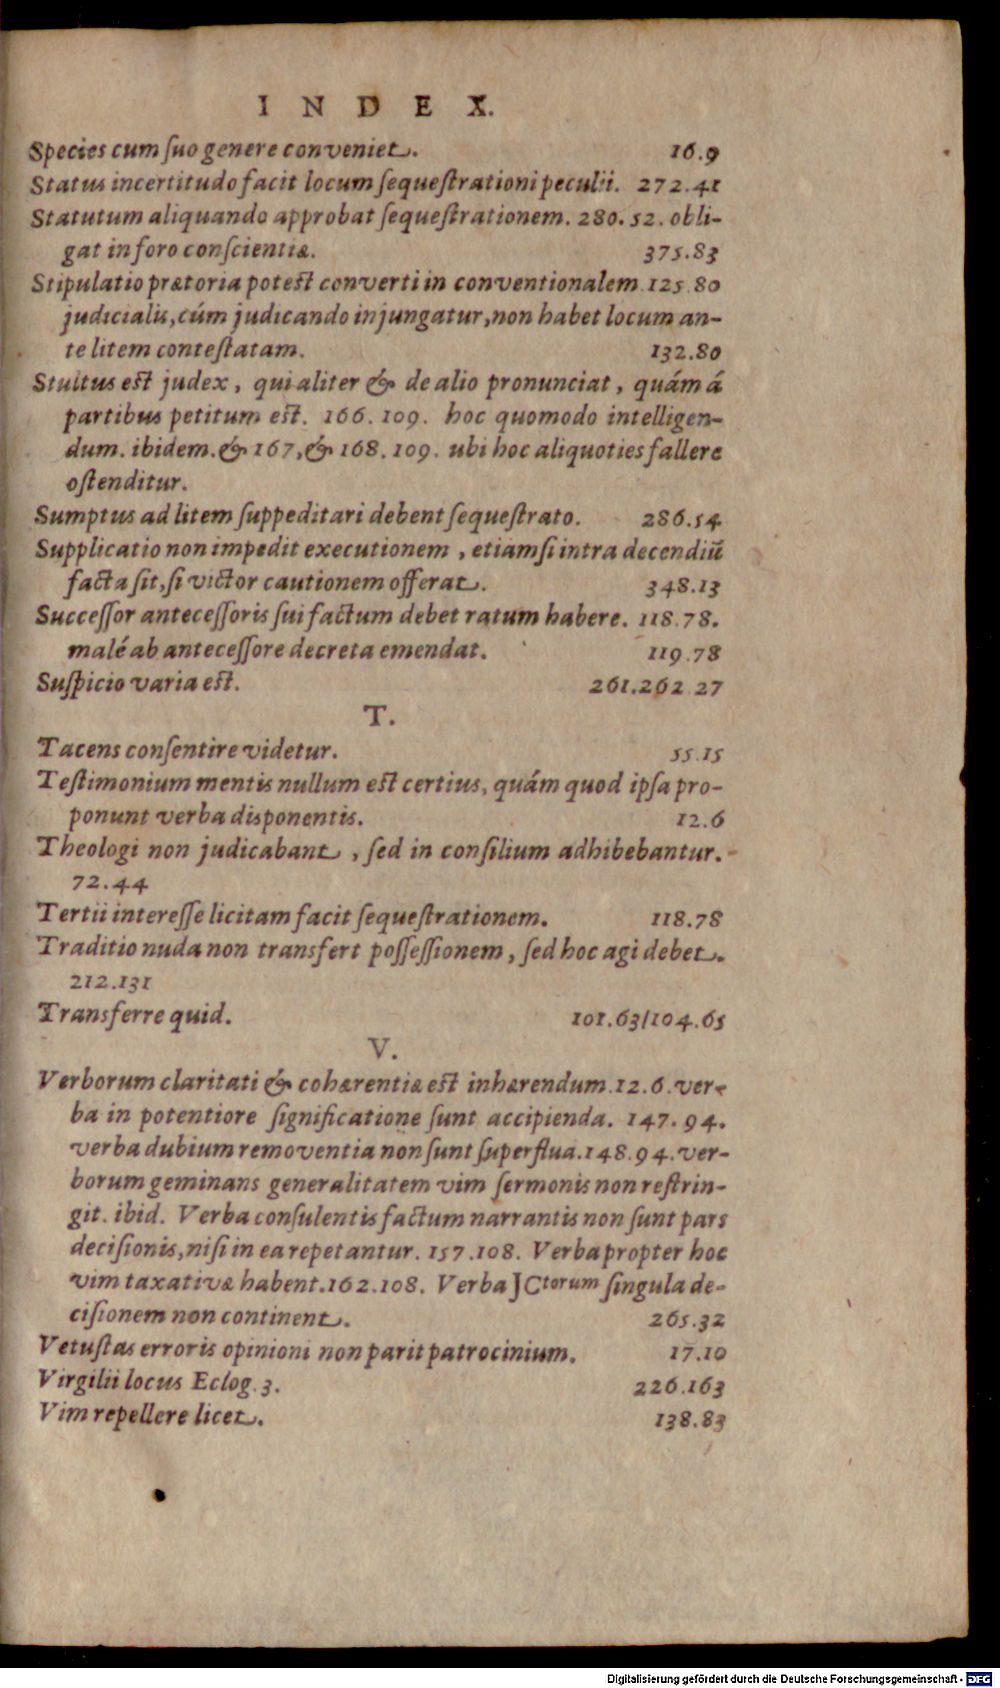 INDEX.
Species cum ſuo genere conveniet. 16.9
Status incertitudo facit locum ſequeſtrationi peculii. 272.41
Statutum aliquando approbat ſequeſtrationem. 280.52. obli-
gat in foro conſcientiæ. 375.83
Stipulatio prætoria poteſt converti in conventionalem 125.80
judicialis, cúm judicando injungatur, non habet locum an-
te litem conteſtatam. 132.80
Stultus eſt judex, qui aliter & de alio pronunciat, quám á
partibus petitum eſt. 166.109. hoc quomodo intelligen-
dum. ibidem. & 167, & 168.109. ubi hoc aliquoties fallere
oſtenditur.
Sumptus ad litem ſuppeditari debent ſequeſtrato. 286.54
Supplicatio non impedit executionem, etiamſi intra decendiū
facta ſit, ſi victor cautionem offerat. 348.13
Succeſſor anteceſſoris ſui factum debet ratum habere. 118.78.
malé ab anteceſſore decreta emendat. 119.78
Suſpicio varia eſt. 261.262 27
T.
Tacens conſentire videtur. 55.15
Teſtimonium mentis nullum eſt certius, quám quod ipſa pro-
ponunt verba disponentis. 12.6
Theologi non judicabant, ſed in conſilium adhibebantur.
72.44
Tertii intereſſe licitam facit ſequeſtrationem. 118.78
Traditio nuda non transfert poſſeſſionem, ſed hoc agi debet.
212.131
Transferre quid. 101.63/104.65
V.
Verborum claritati & cohærentiæ eſt inhærendum. 12.6. ver-
ba in potentiore ſignificatione ſunt accipienda. 147.94.
verba dubium removentia non ſunt ſuperflua. 148.94. ver-
borum geminans generalitatem vim ſermonis non reſtrin-
git. ibid. Verba conſulentis factum narrantis non ſunt pars
deciſionis, niſi in ea repetantur. 157.108. Verba propter hoc
vim taxativæ habent. 162.108. Verba JCtorum ſingula de-
ciſionem non continent. 265.32
Vetuſtas erroris opinioni non parit patrocinium. 17.10
Virgilii locus Eclog. 3. 226.163
Vim repellere licet. 138.83
Digitalisierung gefördert durch die Deutsche Forschungsgemeinschaft - DFG